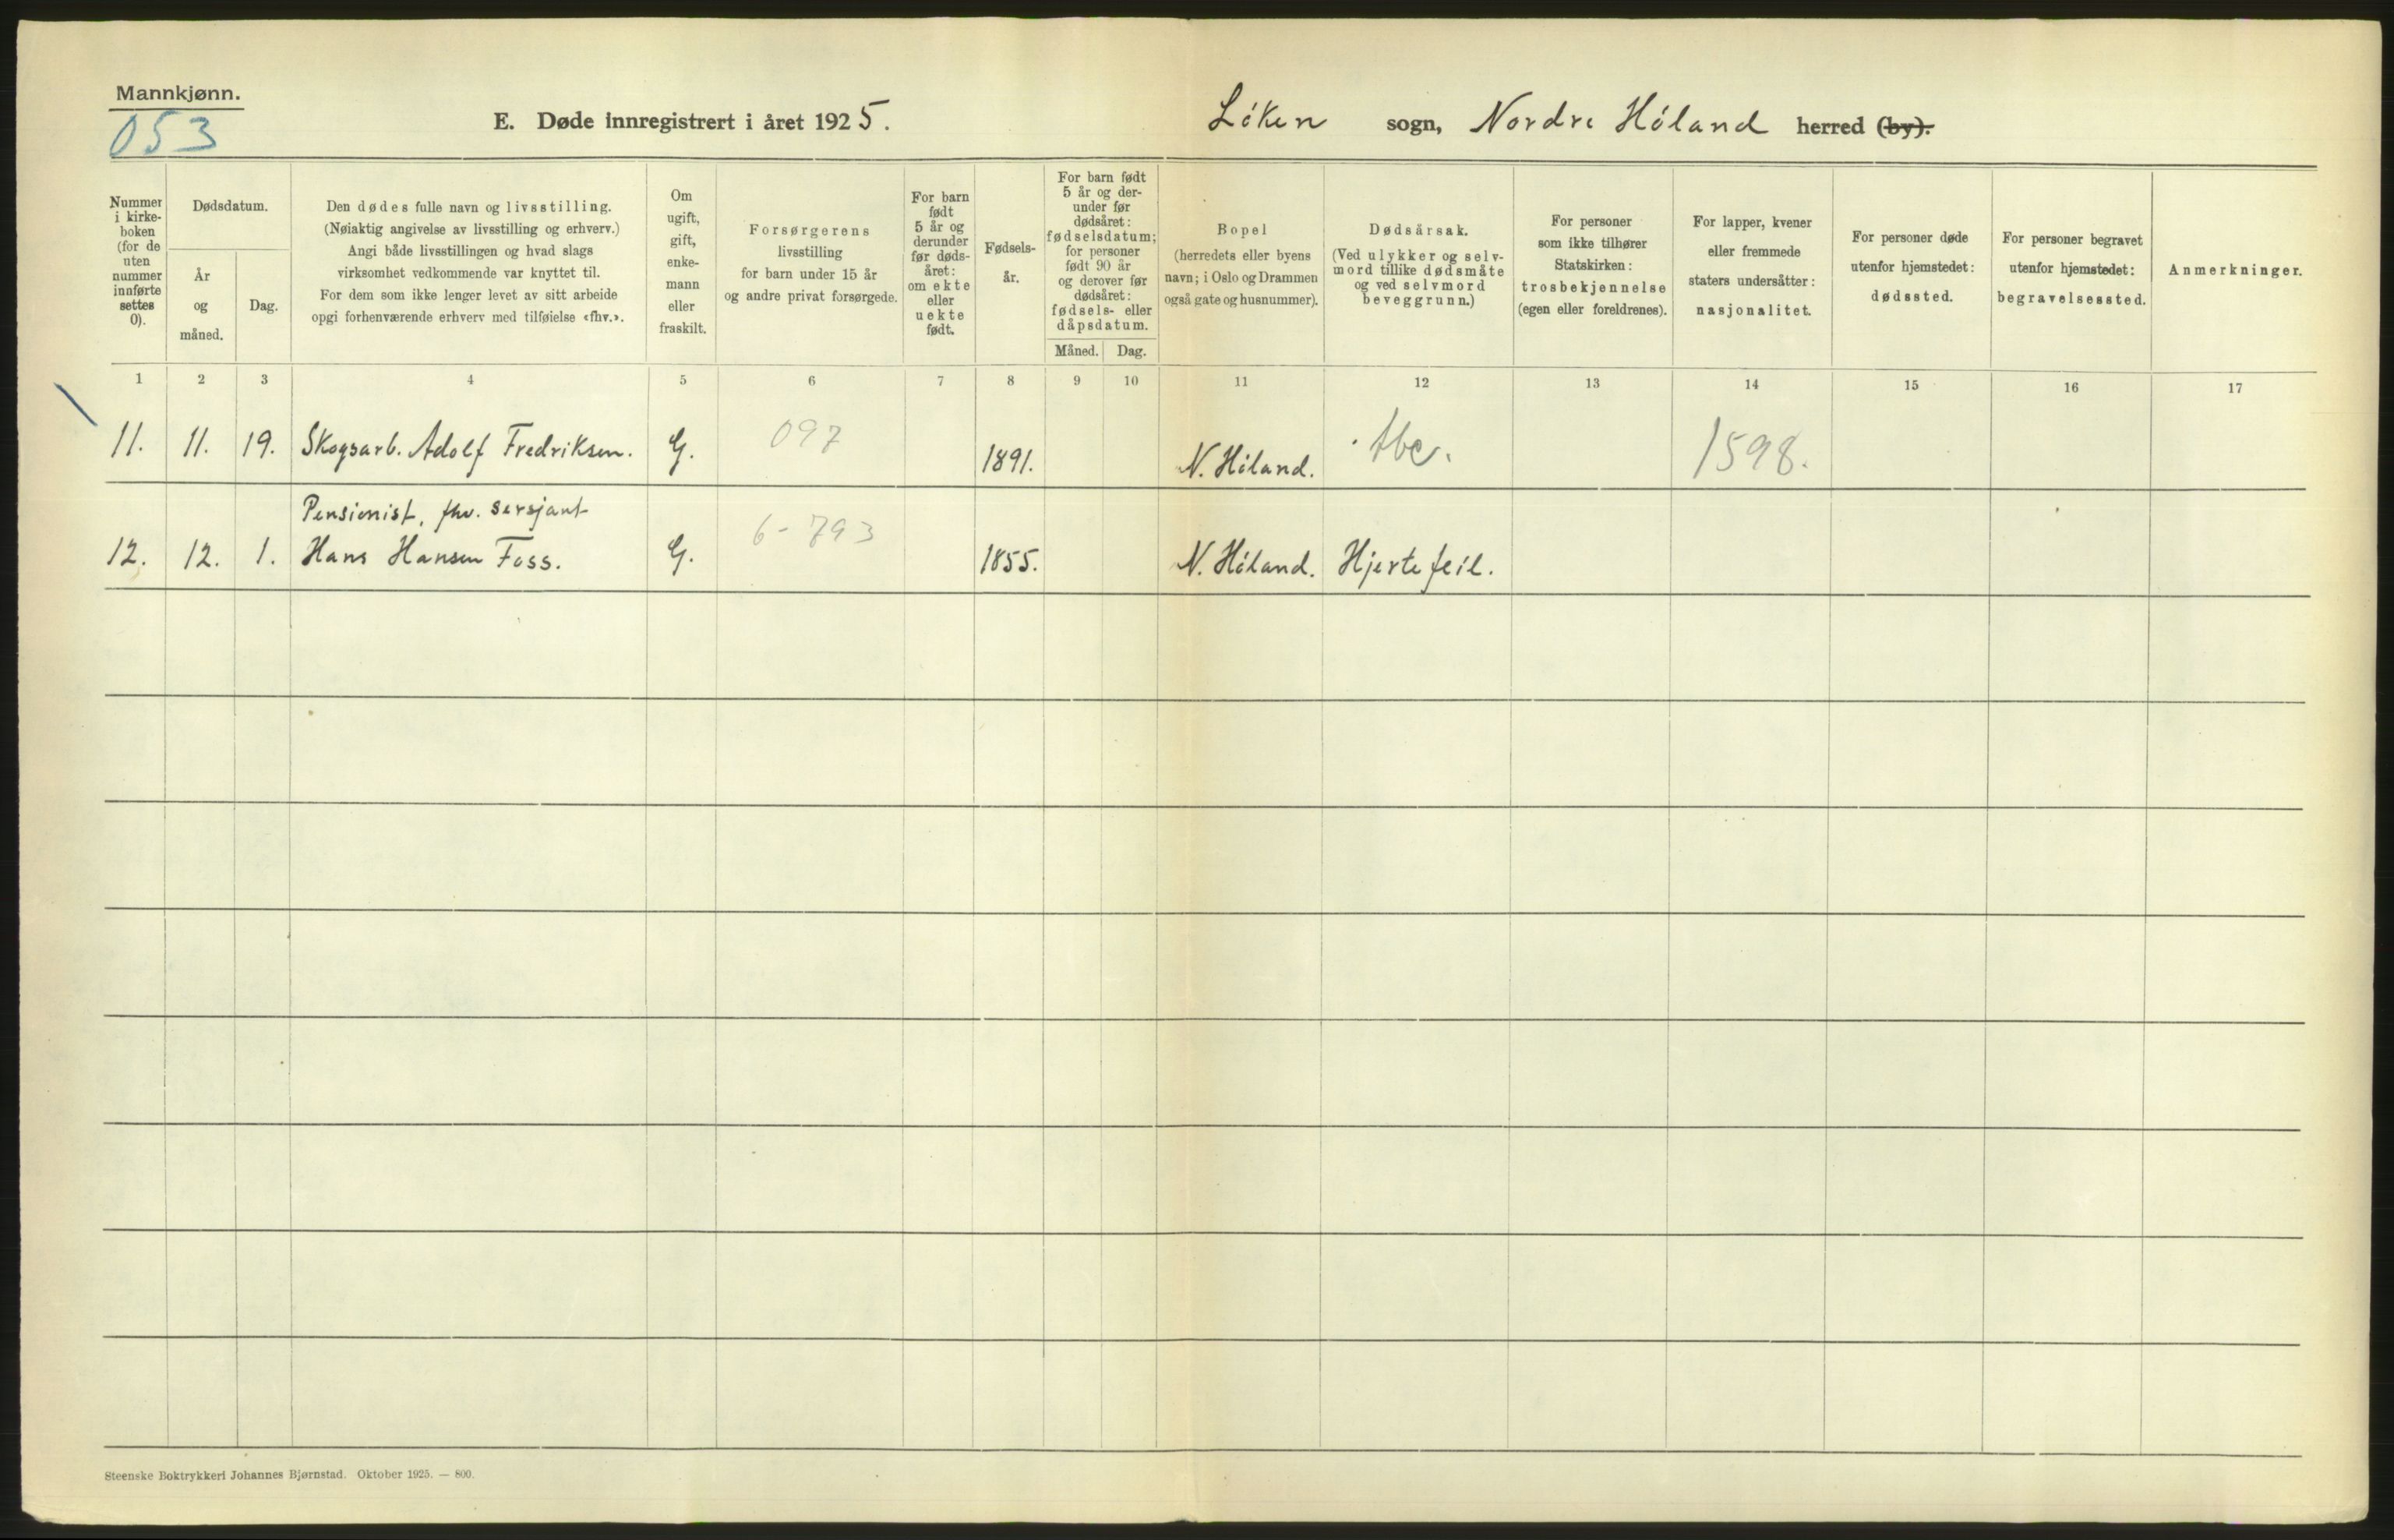 Mannkjønn.
053
E. Døde innregistrert i året 1925.
Löken sogn, Nordre Höland herred (by).
Nummer
i kirke-
boken
(for de
uten
nummer
innførte
settes
0).
Dødsdatum.
År
og
måned.
Dag.
Den dødes fulle navn og livsstilling.
(Nøiaktig angivelse av livsstilling og erhverv.)
Angi både livsstillingen og hvad slags
virksomhet vedkommende var knyttet til.
For dem som ikke lenger levet av sitt arbeide
opgi forhenværende erhverv med tilføielse «fhv.».
Om
ugift,
gift,
enke-
mann
eller
fraskilt.
Forsørgerens
livsstilling
for barn under 15 år
og andre privat forsørgede.
For barn
født
5 år og
derunder
før døds-
året:
om ekte
eller
uekte
født.
Fødsels-
år.
For barn født
5 år og der-
under før
dødsåret:
fødselsdatum;
for personer
født 90 år
og derover før
dødsåret:
fødsels- eller
dåpsdatum.
Måned.
Dag.
Bopel
(herredets eller byens
navn; i Oslo og Drammen
også gate og husnummer).
Dødsårsak.
(Ved ulykker og selv-
mord tillike dødsmåte
og ved selvmord
beveggrunn.)
For personer
som ikke tilhører
Statskirken:
trosbekjennelse
(egen eller foreldrenes).
For lapper, kvener
eller fremmede
staters undersåtter:
nasjonalitet.
For personer døde
utenfor hjemstedet:
dødssted.
For personer begravet
utenfor hjemstedet:
begravelsessted.
Anmerkninger.
1 2 3 4 5 6 7 8 9 10 11 12 13 14 15 16 17
11. 11. 19. Skogsarb. Adolf Fredriksen. G. 097 1891. N. Höland. tbc. 1598.
Pensionist, fhv. sersjant
12. 12. 1. Hans Hansen Foss. G. 6-793 1855. N. Höland. Hjertefeil.
Steenske Boktrykkeri Johannes Bjørnstad. Oktober 1925. — 800.